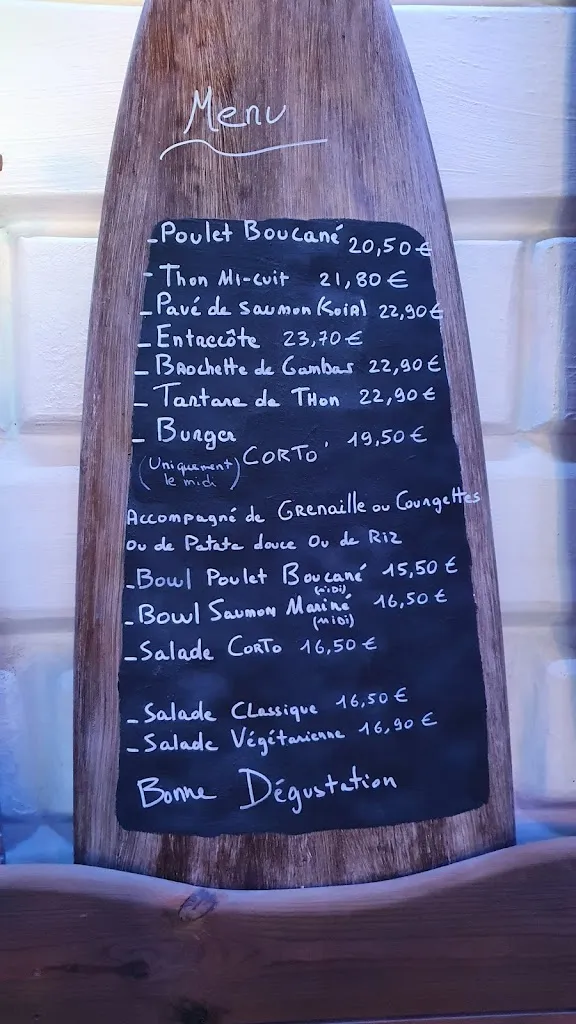 Menu
- Poulet Boucané 20,50 €
- Thon Mi-cuit 21,80 €
- Pavé de saumon (soir) 22,90 €
- Entrecôte 23,70 €
- Brochette de Gambas 22,90 €
- Tartare de Thon 22,90 €
- Burger CORTO' 19,50 €
(Uniquement le midi)
Accompagné de Grenaille ou Courgettes
Ou de Patate douce Ou de Riz
- Bowl Poulet Boucané 15,50 €
(midi)
- Bowl Saumon Mariné 16,50 €
(midi)
- Salade Corto 16,50 €
- Salade Classique 16,50 €
- Salade Végétarienne 16,90 €
Bonne Dégustation